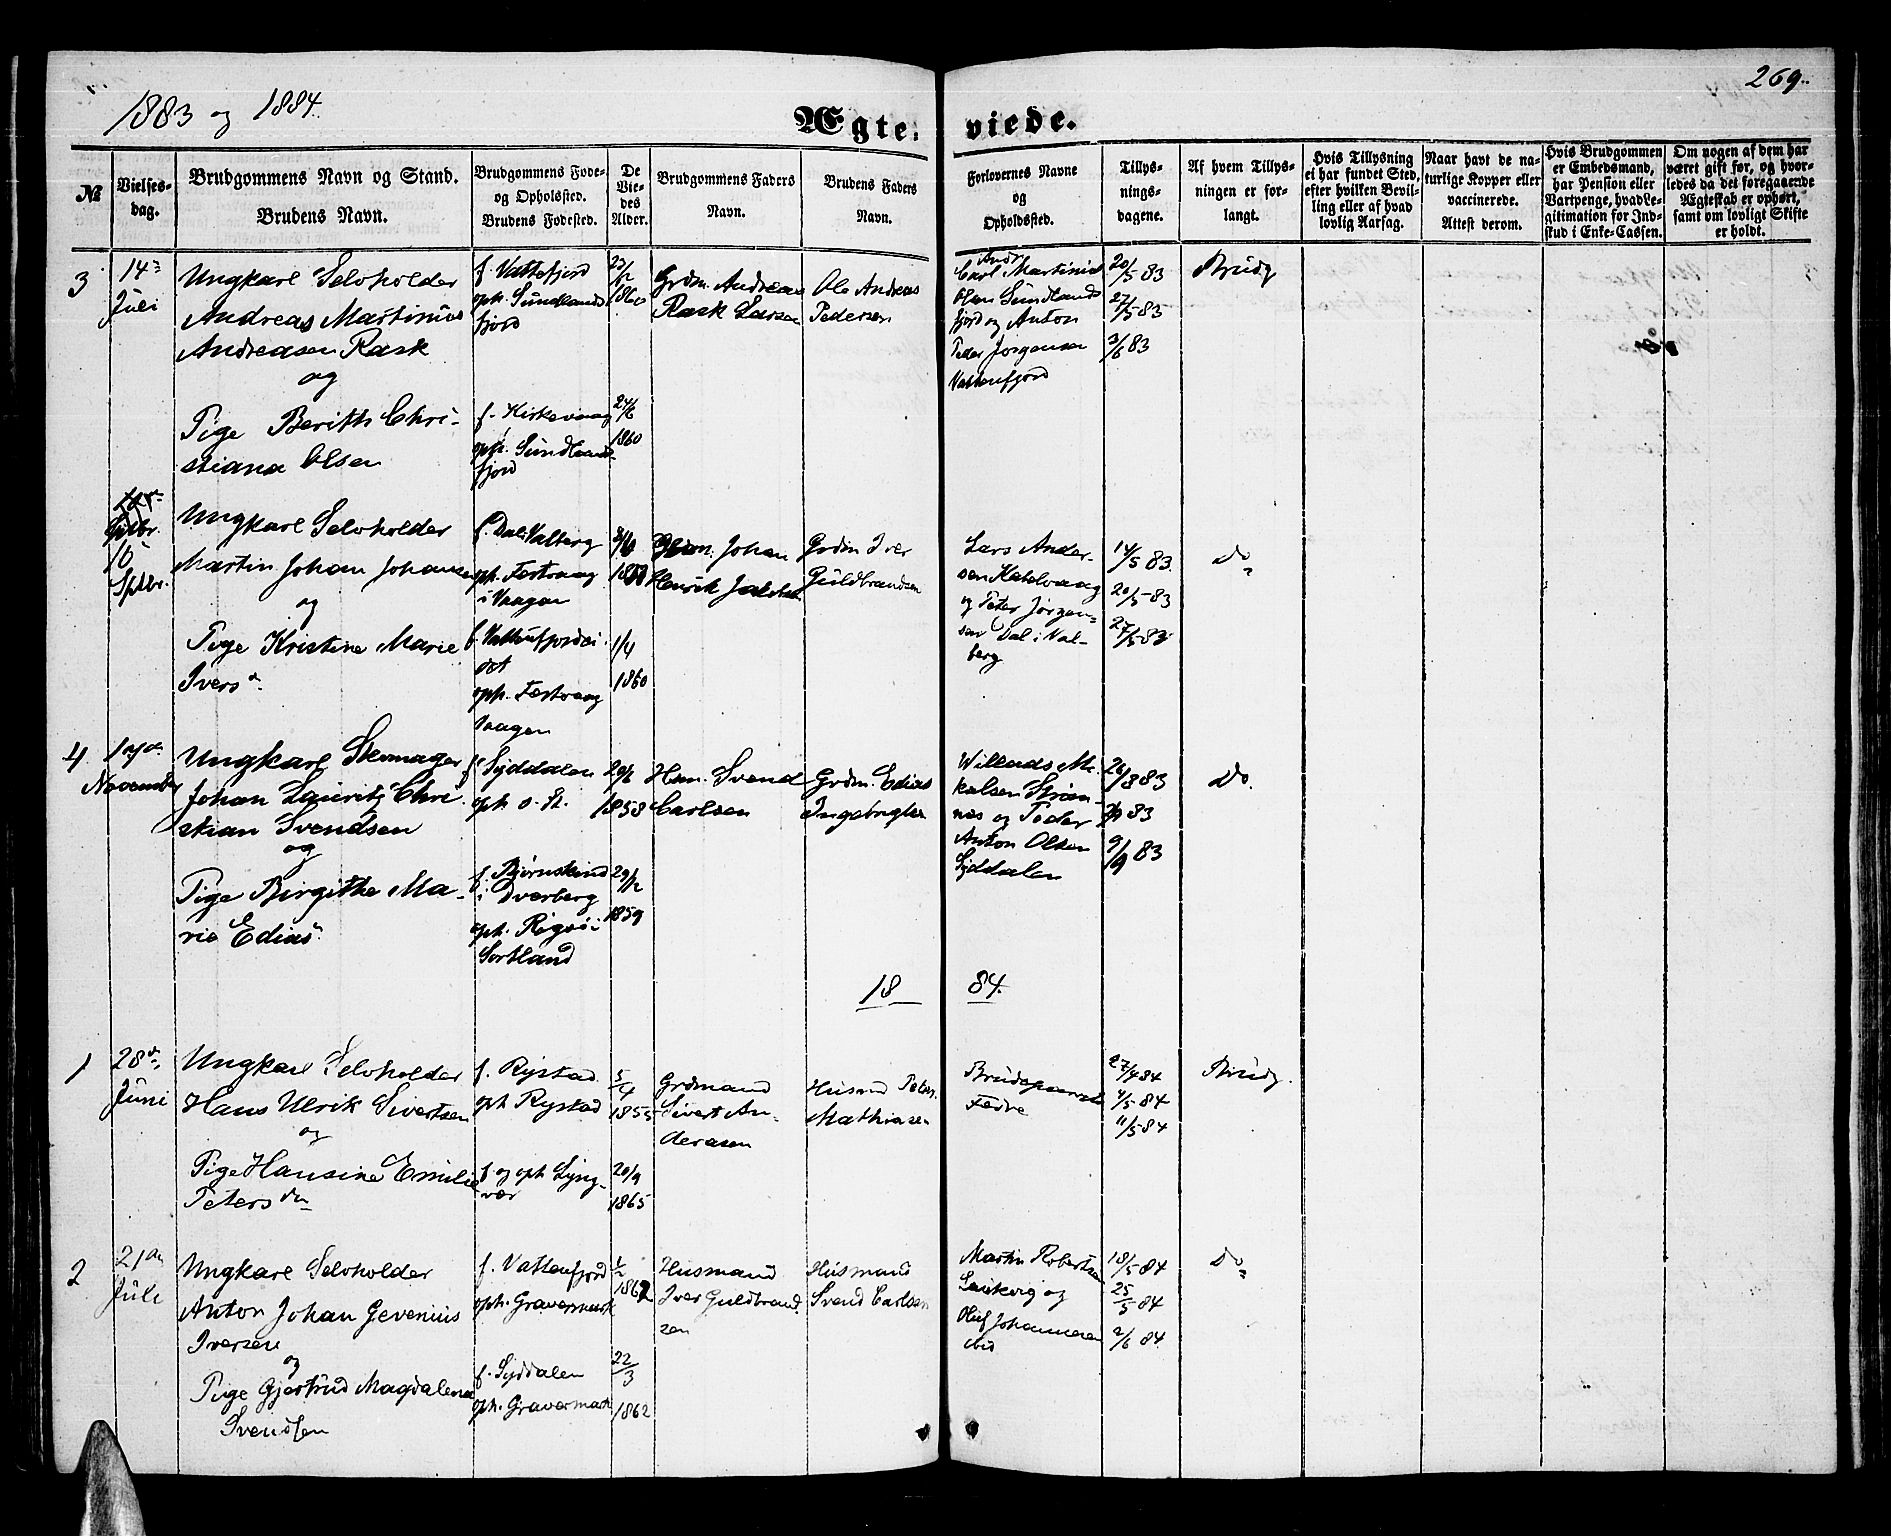 1883 og 1884.
269.
Ægte. viede.
№
Vielses-
dag.
Brudgommens Navn og Stand.
Brudens Navn.
Brudgommens Føde-
og Opholdsted.
Brudens Fødested.
De
Vie-
des
Alder.
Brudgommens Faders
Navn.
Brudens Faders
Navn.
Forlovernes Navne
og
Opholdssted.
Tillys-
nings-
dagene.
Af hvem Tillys-
ningen er for-
langt.
Hvis Tillysning
ei har fundet Sted,
efter hvilken Bevil-
ling eller af hvad
lovlig Aarsag.
Naar havt de na-
turlige Kopper eller
vaccinerede.
Attest derom.
Hvis Brudgommen
er Embedsmand,
har Pension eller
Vartpenge, hvad Le-
gitimation for Ind-
skud i Enke-Cassen.
Om nogen af dem har
været gift før, og hvor-
ledes da det foregaaende
Ægteskab er ophørt,
samt om lovligt Skifte
er holdt.
3
14
Juli
Ungkarl Selvholder
Andreas Martinus
Andreasen Rask
og
Pige Berith Chri-
stiana Olsen
f. Vattefjord
oph. Sundlands
fjord
f. Kirkevaag
oph. Sundlands-
fjord
1860
24/6
1860
Grdm. Andreas
Rask Larsen
Ole Andreas
Pedersen
Andr
Carl Martinus
Olsen Sundlands
fjord og Anton
Peder Jørgensen
Vattenfjord
20/5 83
27/5 83
3/6 83
Brudg
Septbr.
16
Sptbr.
Ungkarl Selvholder
Martin Johan Johansen
og
Pige Kristine Marie
Ivers d.
f. Dal i Valberg
oph. Festvaag
i Vaagan
f. Vattenfjordei-
det
oph. Festvaag
Vaagen
1/4
1860
Johan
Henrik
Grdm Iver
Guldbrandsen
Lars Ander-
sen Kabelvaag
og Peter Jørgen-
sen Dal i Val-
berg
14/5 83
20/5 83
27/5 83
Do
4
November
Ungkarl Skomager
Johan Lauritz Chri
stian Svendsen
og
Pige Birgithe Ma-
rie Edias
f. Syddalen
oph. o. St.
f. Bjørnskind
i Dverberg
oph. Rigsø i
Sortland
1858
29/12
1859
Hm. Svend
Carlsen
Grdm. Edias
Ingebrigtsen
Willads Mi
kalsen Stran-
nes og Peder
Anton Olsen
Syddalen
26/8 83
83
9/9 83
Do.
18 84.
1
28 d.
Juni
Ungkarl Selvholder
Hans Ulrik Sivertsen
og
Pige Hansine Emilie
Peters dtr
f. Rystad
oph Rystad
f. og oph Lyng-
vær
5/4
1855
20/9
1865
Grdmand
Sivert An-
dersen
Husmd Peter
Mathiasen
Brudeparrets
Fedre
27/4 84
4/5 84
11/5 84
Brudg.
2
21
Juli
Ungkarl Selvholder
Anton Johan Gevenius
Iversen
og
Pige Gjertrud Magdalena
Svendsen
f. Vattenfjord
oph. Gravermark
f. Syddalen
oph. Gravermark
1/2
1862
22/3
1862
Husmand
Iver Guldbrand
sen
Husmand
Svend Carlsen
Martin Robertsen
Laukvig og
Oluf Johannesen
ibid
18/5 84
25/5 84
2/6 84
Do